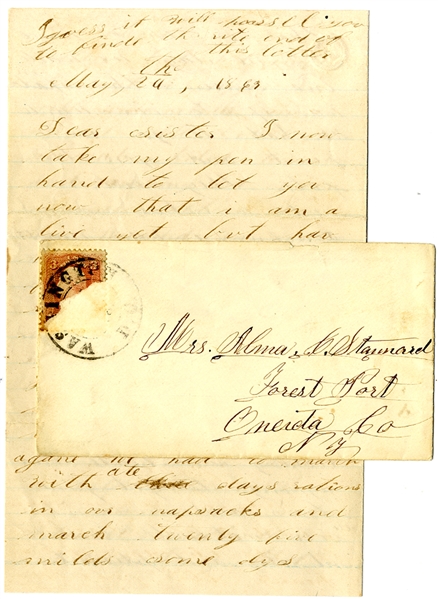 I guess it will powsel you
to finde the rite end of
this letter
May the 2d, 1863
Dear sister I now
take my pen in
hand to let you
now that i am a
live yet but hav
WASHINGTON
Mrs. Alma, G. Stannard
Forest Port
Oneida Co
N.Y
agane we had to march
with ate days rations
in our napsacks and
march twenty five
milds some dys